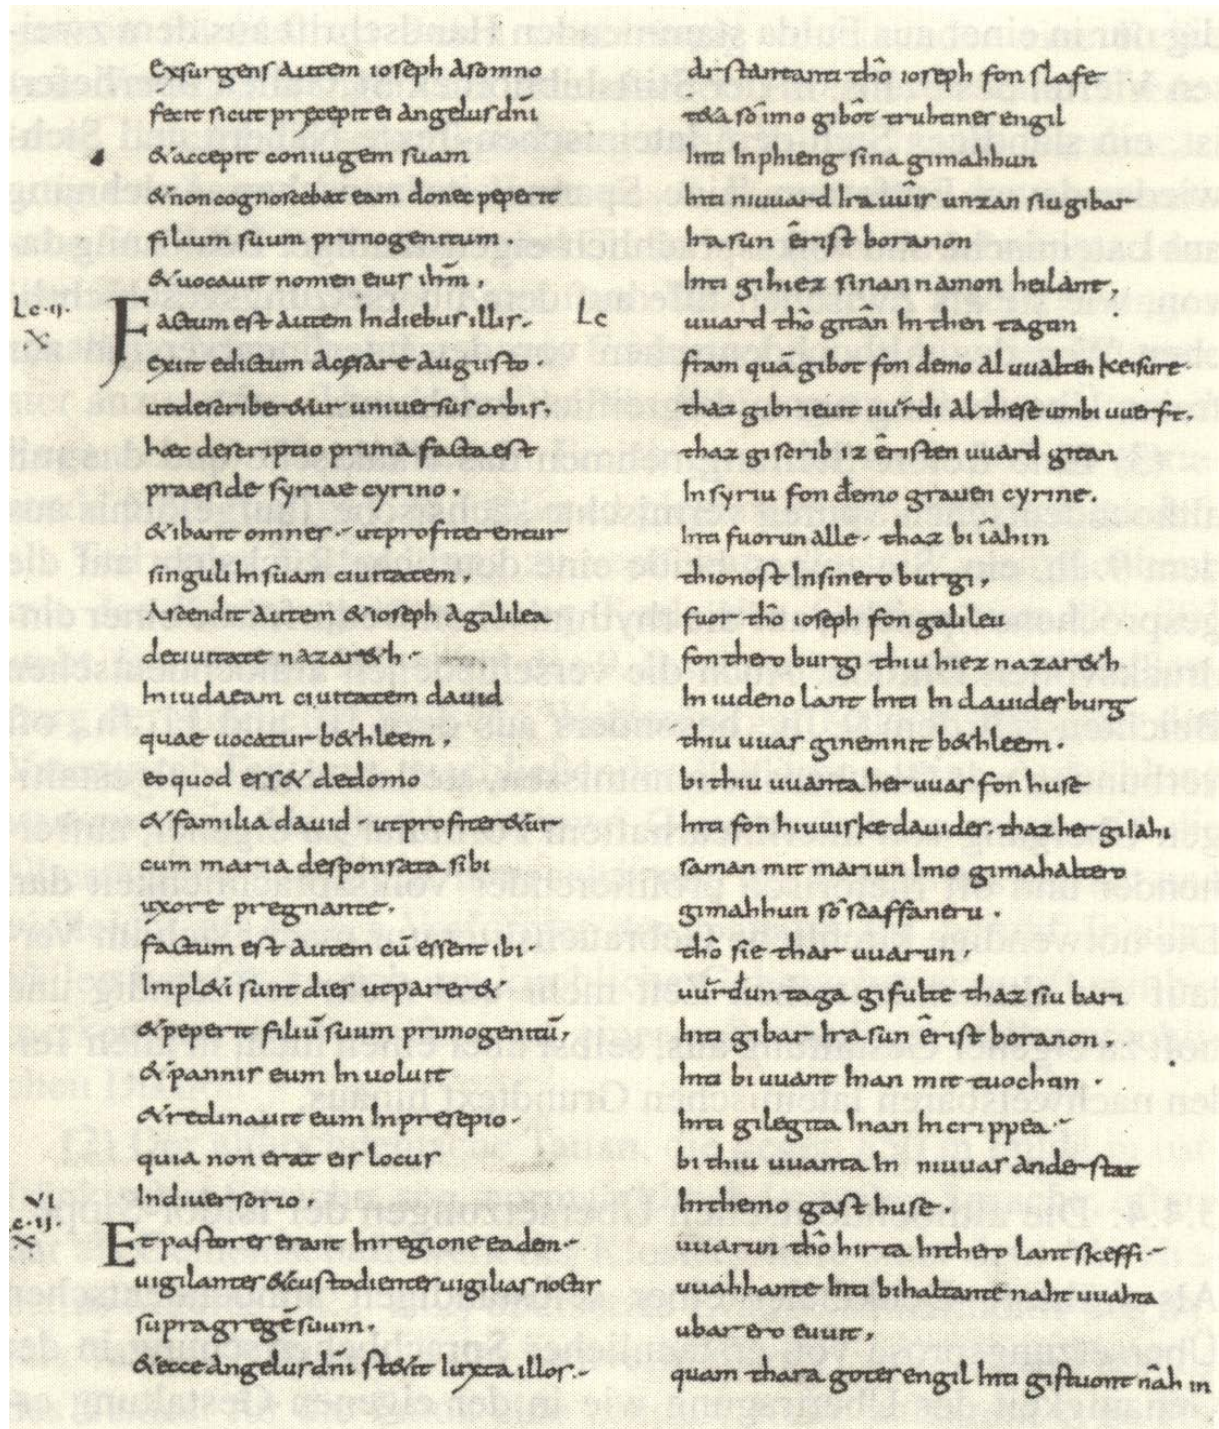 exsurgens autem ioseph asomno
fecit sicut pręcepit ei angelus dn̄i
& accepit coniugem suam
& non cognoscebat eam donec peperit
filium suum primogenitum.
& uocauit nomen eius ihm̄,
Lc·ij·
X
Factum est autem Indiebus illis.
exiit edictum acęsare augusto.
ut describer&ur universus orbis,
hæc descriptio prima facta est
praeside syriae cyrino.
& ibant omnes. ut profiterentur
singuli Insuam ciuitatem,
Ascendit autem & ioseph agalilea
deciuitate nazar&h.
In iudaeam ciuitatem david
quae uocatur b&hleem,
eo quod ess& dedomo
& familia dauid. ut profiter&ur
cum maria desponsata sibi
uxore pregnante.
factum est autem cū essent ibi.
Impl&i sunt dies ut parer&
& peperit filiū suum primogenitū,
& pannis eum In uoluit
& reclinauit eum Inpresepio.
quia non erat eis locus
Indiuersorio,
VI
c·ij·
X
Et pastores erant Inregione eadem.
uigilantes & custodientes uigilias noctis
supra gregē suum.
& ecce angelus dn̄i st&it Iuxta illos.
arstantanti thô ioseph fon slafe
t&a sô imo gibôt truhtines engil
Inti Inphieng sina gimahhun
Inti niuuard Ira uuîs unzan siu gibar
Ira sun êrist boranon
Inti gihiez sinan namon heilant,
Lc
uuard thô gitân In then tagun
fram quā gibot fon demo al uualten keisure.
thaz gibrieuit uurdi al these umbi uuerft.
thaz giscrib iz êristen uuard gitan
In syriu fon demo grauen cyrine.
Inti fuorun alle. thaz bi iâhin
thionost Insinero burgi,
fuor thô ioseph fon galileu
fon thero burgi thiu hiez nazar&h
In iudeno lant Inti In dauides burg
thiu uuas ginemnit b&hleem.
bi thiu uuanta her uuas fon huse
Inti fon hiuuiske dauides. thaz her giiahi
saman mit mariun Imo gimahaltero
gimahhun sô scaffaneru.
thô sie thar uuarun,
uurdun taga gifulte thaz siu bari
Inti gibar Ira sun êrist boranon,
Inti bi uuant Inan mit tuochun.
Inti gilegita Inan In crippea.
bi thiu uuanta In niuuas ander stat
Inthemo gast huse.
uuarun thô hirta Inthero lantskeffi.
uuahhante Inti bihaltante naht uuahta
ubar ero euuit,
quam thara gotes engil Inti gistuont nâh in